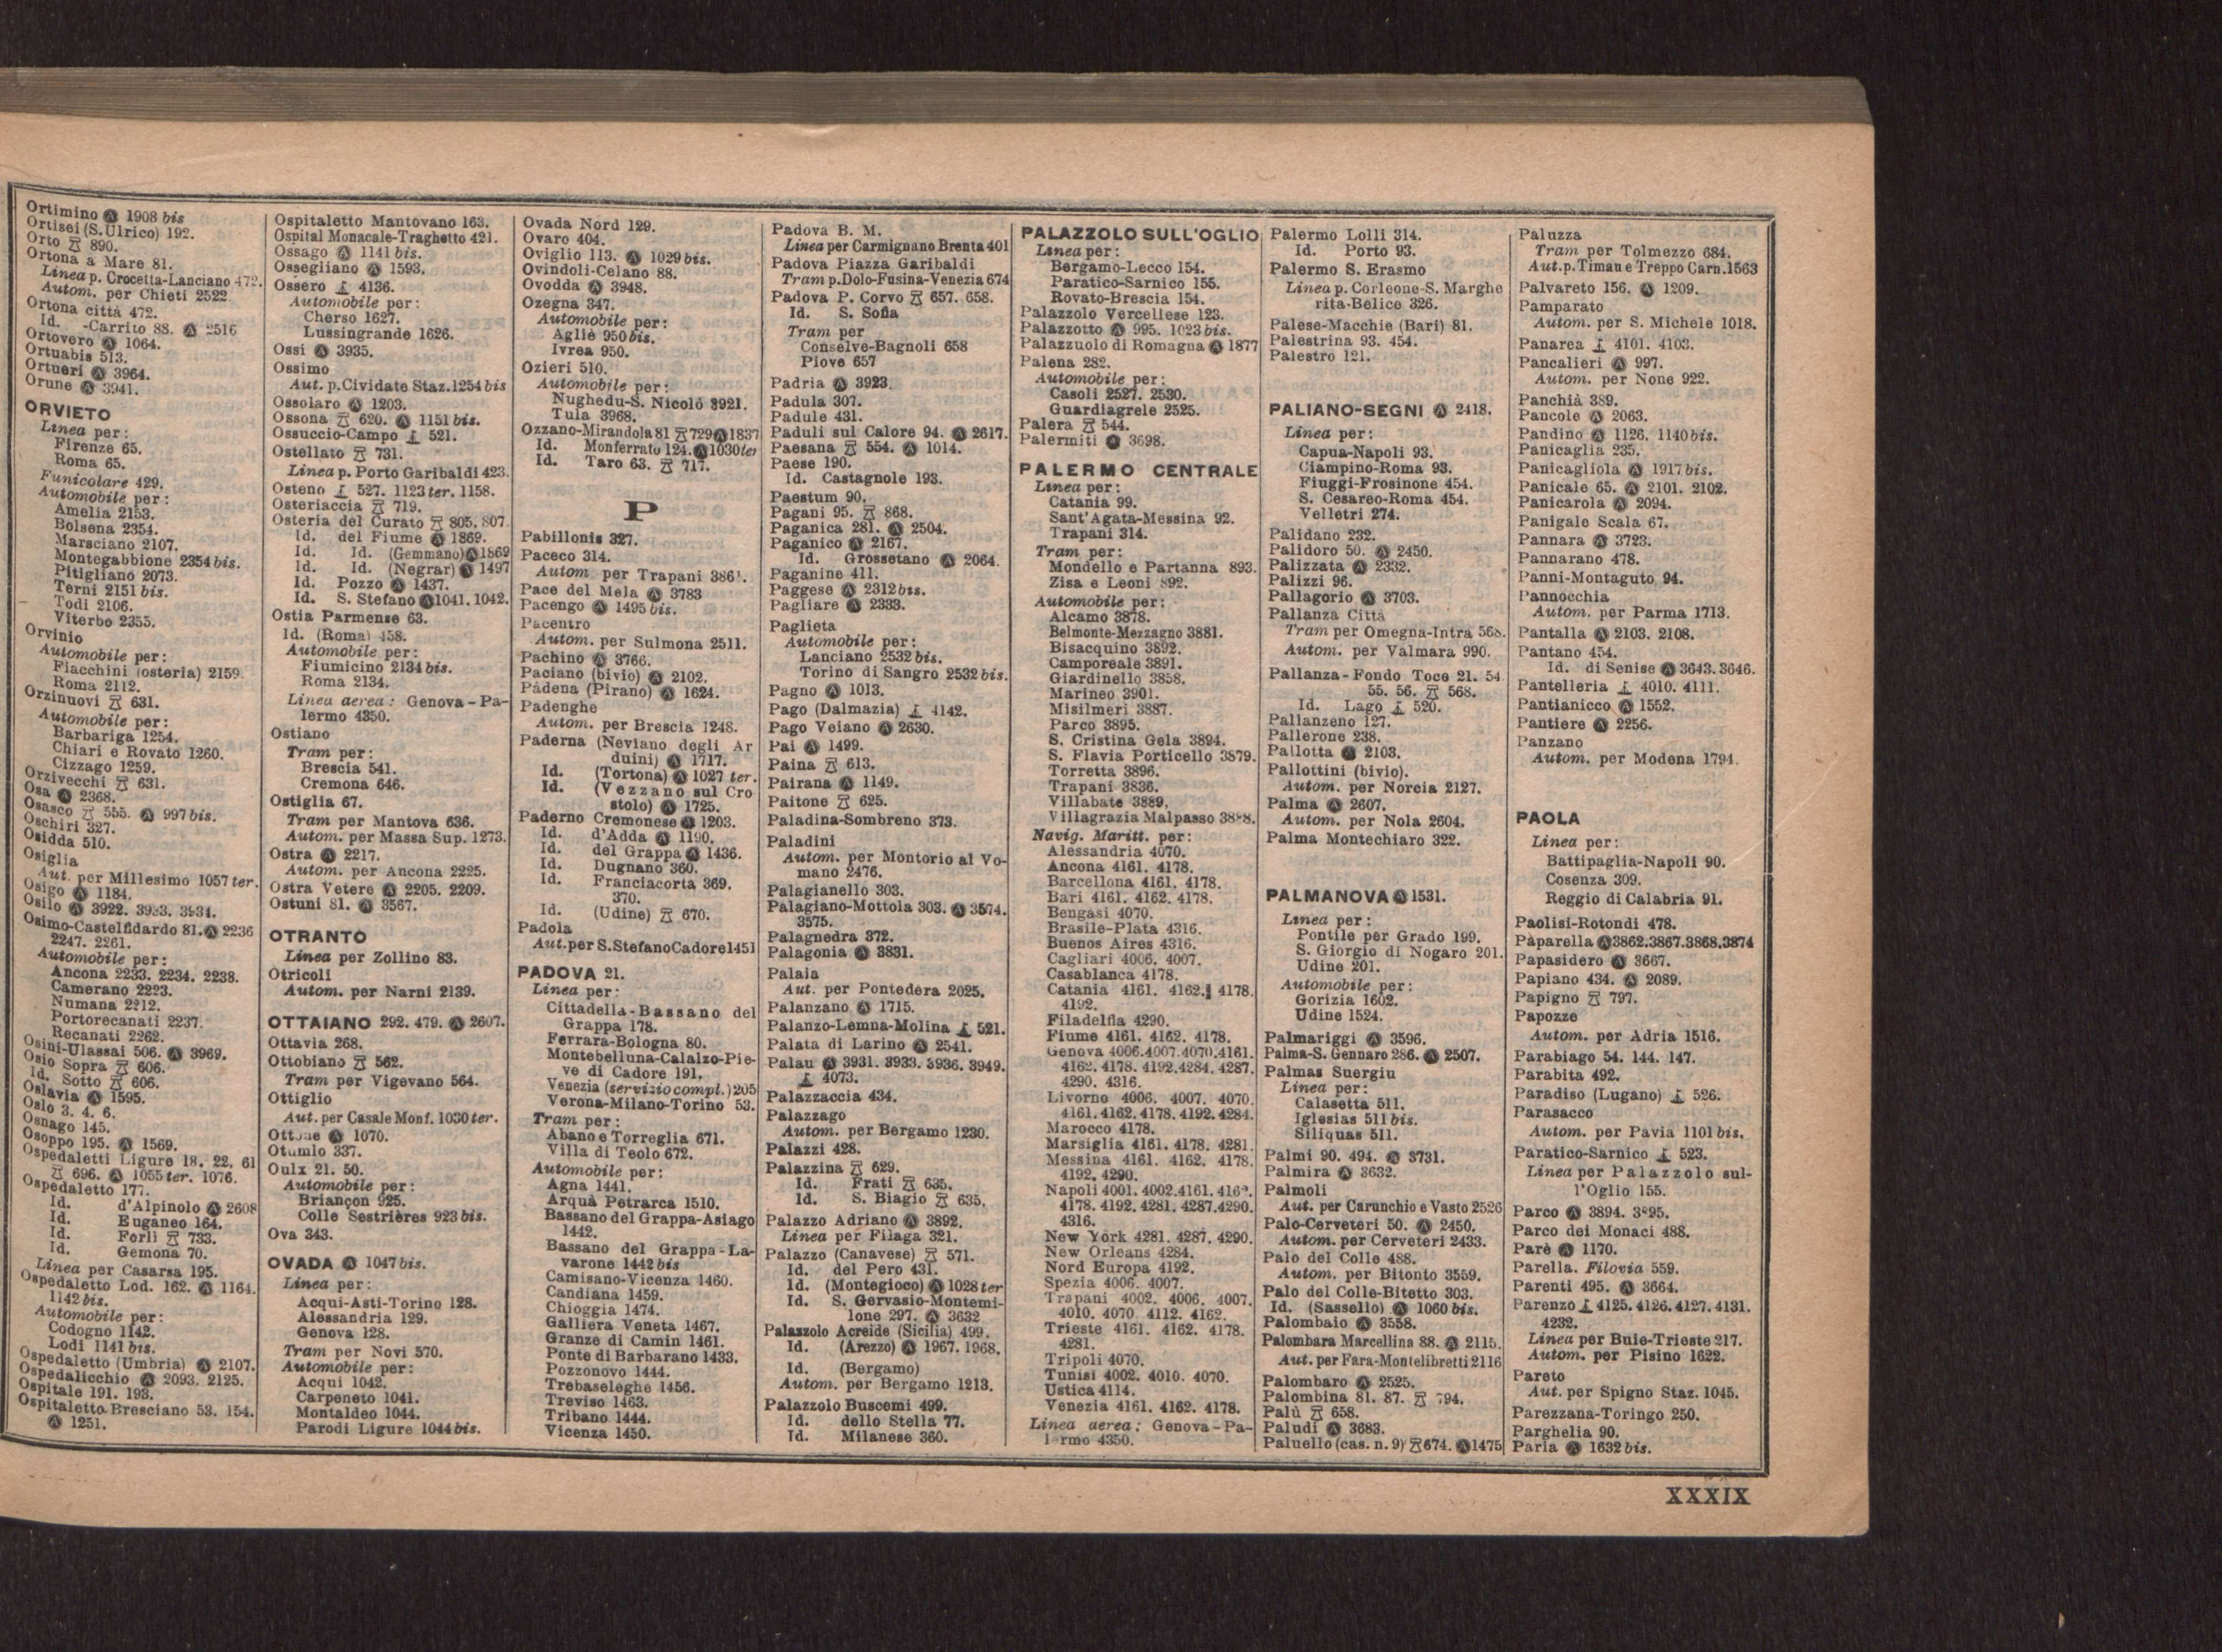 Ortimino Ⓐ 1908 bis
Ortisei (S. Ulrico) 192.
Orto 890.
Ortona a Mare 81.
Linea p. Crocetta-Lanciano 472.
Autom. per Chieti 2522
Ortona città 472.
Id. -Carrito 88. Ⓐ 2516
Ortovero Ⓐ 1064.
Ortuabis 513.
Ortueri Ⓐ 3964.
Orune Ⓐ 3941.
ORVIETO
Linea per:
Firenze 65.
Roma 65.
Funicolare 429.
Automobile per:
Amelia 2153.
Bolsena 2354.
Marsciano 2107.
Montegabbione 2354 bis.
Pitigliano 2073.
Terni 2151 bis.
Todi 2106.
Viterbo 2355.
Orvinio
Automobile per:
Fiacchini (osteria) 2159.
Roma 2112.
Orzinuovi 631.
Automobile per:
Barbariga 1254.
Chiari e Rovato 1260.
Cizzago 1259.
Orzivecchi 631.
Osa Ⓐ 2368.
Osasco 555. Ⓐ 997 bis.
Oschiri 327.
Osidda 510.
Osiglia
Aut. per Millesimo 1057 ter.
Osigo Ⓐ 1184.
Osilo Ⓐ 3922. 3934.
Osimo-Castelfidardo 81. Ⓐ 2236
2247. 2261.
Automobile per:
Ancona 2233. 2234. 2238.
Camerano 2223.
Numana 2212.
Portorecanati 2237.
Recanati 2262.
Osini-Ulassai 506. Ⓐ 3969.
Osio Sopra 606.
Id. Sotto 606.
Oslavia Ⓐ 1595.
Oslo 3. 4. 6.
Osnago 145.
Osoppo 195. Ⓐ 1569.
Ospedaletti Ligure 18. 22. 61
696. Ⓐ 1055 ter. 1076.
Ospedaletto 177.
Id. d'Alpinolo Ⓐ 2608
Id. Euganeo 164.
Id. Forlì 733.
Id. Gemona 70.
Linea per Casarsa 195.
Ospedaletto Lod. 162. Ⓐ 1164.
1142 bis.
Automobile per:
Codogno 1142.
Lodi 1141 bis.
Ospedaletto (Umbria) Ⓐ 2107.
Ospedalicchio Ⓐ 2093. 2125.
Ospitale 191. 193.
Ospitaletto Bresciano 53. 154.
Ⓐ 1251.
Ospitaletto Mantovano 163.
Ospital Monacale-Traghetto 421.
Ossago Ⓐ 1141 bis.
Ossegliano Ⓐ 1593.
Ossero 4136.
Automobile per:
Cherso 1627.
Lussingrande 1626.
Ossi Ⓐ 3935.
Ossimo
Aut. p. Cividate Staz. 1254 bis
Ossolaro Ⓐ 1203.
Ossona 620. Ⓐ 1151 bis.
Ossuccio-Campo 521.
Ostellato 731.
Linea p. Porto Garibaldi 423.
Osteno 527. 1123 ter. 1158.
Osteriaccia 719.
Osteria del Curato 805. 807.
Id. del Fiume Ⓐ 1869.
Id. Id. (Gemmano) Ⓐ 1869
Id. Id. (Negrar) Ⓐ 1497
Id. Pozzo Ⓐ 1437.
Id. S. Stefano Ⓐ 1041. 1042.
Ostia Parmense 63.
Id. (Roma) 458.
Automobile per:
Fiumicino 2134 bis.
Roma 2134.
Linea aerea: Genova-Pa-
lermo 4350.
Ostiano
Tram per:
Brescia 541.
Cremona 646.
Ostiglia 67.
Tram per Mantova 636.
Autom. per Massa Sup. 1273.
Ostra Ⓐ 2217.
Autom. per Ancona 2225.
Ostra Vetere Ⓐ 2205. 2209.
Ostuni 81. Ⓐ 3567.
OTRANTO
Linea per Zollino 83.
Otricoli
Autom. per Narni 2139.
OTTAIANO 292. 479. Ⓐ 2607.
Ottavia 268.
Ottobiano 562.
Tram per Vigevano 564.
Ottiglio
Aut. per Casale Monf. 1030 ter.
Ottone Ⓐ 1070.
Otumlo 337.
Oulx 21. 50.
Automobile per:
Briançon 925.
Colle Sestrières 923 bis.
Ova 343.
OVADA Ⓐ 1047 bis.
Linea per:
Acqui-Asti-Torino 128.
Alessandria 129.
Genova 128.
Tram per Novi 570.
Automobile per:
Acqui 1042.
Carpeneto 1041.
Montaldeo 1044.
Parodi Ligure 1044 bis.
Ovada Nord 129.
Ovaro 404.
Oviglio 113. Ⓐ 1029 bis.
Ovindoli-Celano 88.
Ovodda Ⓐ 3948.
Ozegna 347.
Automobile per:
Agliè 950 bis.
Ivrea 950.
Ozieri 510.
Automobile per:
Nughedu-S. Nicolò 3921.
Tula 3968.
Ozzano-Mirandola 81 729 Ⓐ 1837
Id. Monferrato 124. Ⓐ 1030 ter
Id. Taro 63. 717.
P
Pabillonis 327.
Paceco 314.
Autom per Trapani
Pace del Mela Ⓐ 3783
Pacengo Ⓐ 1495 bis.
Pacentro
Autom. per Sulmona 2511.
Pachino Ⓐ 3766.
Paciano (bivio) Ⓐ 2102.
Pàdena (Pirano) Ⓐ 1624.
Padenghe
Autom. per Brescia 1248.
Paderna (Neviano degli Ar
duini) Ⓐ 1717.
Id. (Tortona) Ⓐ 1027 ter.
Id. (Vezzano sul Cro
stolo) Ⓐ 1725.
Paderno Cremonese Ⓐ 1203.
Id. d'Adda Ⓐ 1190.
Id. del Grappa Ⓐ 1436.
Id. Dugnano 360.
Id. Franciacorta 369.
370.
Id. (Udine) 670.
Padola
Aut. per S. Stefano Cadore 1451
PADOVA 21.
Linea per:
Cittadella-Bassano del
Grappa 178.
Ferrara-Bologna 80.
Montebelluna-Calalzo-Pie-
ve di Cadore 191.
Venezia (servizio compl.) 205
Verona-Milano-Torino 53.
Tram per:
Abano e Torreglia 671.
Villa di Teolo 672.
Automobile per:
Agna 1441.
Arquà Petrarca 1510.
Bassano del Grappa-Asiago
1442.
Bassano del Grappa-La-
varone 1442 bis
Camisano-Vicenza 1460.
Candiana 1459.
Chioggia 1474.
Galliera Veneta 1467.
Granze di Camin 1461.
Ponte di Barbarano 1433.
Pozzonovo 1444.
Trebaseleghe 1456.
Treviso 1463.
Tribano 1444.
Vicenza 1450.
Padova B. M.
Linea per Carmignano Brenta 401
Padova Piazza Garibaldi
Tram p. Dolo-Fusina-Venezia 674
Padova P. Corvo 657. 658.
Id. S. Sofia
Tram per
Conselve-Bagnoli 658
Piove 657
Padria Ⓐ 3923.
Padula 307.
Padule 431.
Paduli sul Calore 94. Ⓐ 2617.
Paesana 554. Ⓐ 1014.
Paese 190.
Id. Castagnole 193.
Paestum 90.
Pagani 95. 868.
Paganica 281. Ⓐ 2504.
Paganico Ⓐ 2167.
Id. Grossetano Ⓐ 2064.
Paganine 411.
Paggese Ⓐ 2312 bis.
Pagliare Ⓐ 2333.
Paglieta
Automobile per:
Lanciano 2532 bis.
Torino di Sangro 2532 bis.
Pagno Ⓐ 1013.
Pago (Dalmazia) 4142.
Pago Veiano Ⓐ 2630.
Pai Ⓐ 1499.
Paina 613.
Pairana Ⓐ 1149.
Paitone 625.
Paladina-Sombreno 373.
Paladini
Autom. per Montorio al Vo-
mano 2476.
Palagianello 303.
Palagiano-Mottola 303. Ⓐ 3574.
3575.
Palagnedra 372.
Palagonia Ⓐ 3831.
Palaia
Aut. per Pontedera 2025.
Palanzano Ⓐ 1715.
Palanzo-Lemna-Molina 521.
Palata di Larino Ⓐ 2541.
Palau Ⓐ 3931. 3933. 3936. 3949.
4073.
Palazzaccia 434.
Palazzago
Autom. per Bergamo 1230.
Palazzi 428.
Palazzina 629.
Id. Frati 635.
Id. S. Biagio 635.
Palazzo Adriano Ⓐ 3892.
Linea per Filaga 321.
Palazzo (Canavese) 571.
Id. del Pero 431.
Id. (Montegioco) Ⓐ 1028 ter
Id. S. Gervasio-Montemi-
lone 297. Ⓐ 3632
Palazzolo Acreide (Sicilia) 499.
Id. (Arezzo) Ⓐ 1967. 1968.
Id. (Bergamo)
Autom. per Bergamo 1213.
Palazzolo Buscemi 499.
Id. dello Stella 77.
Id. Milanese 360.
PALAZZOLO SULL'OGLIO
Linea per:
Bergamo-Lecco 154.
Paratico-Sarnico 155.
Rovato-Brescia 154.
Palazzolo Vercellese 123.
Palazzotto Ⓐ 995. 1023 bis.
Palazzuolo di Romagna Ⓐ 1877
Palena 282.
Automobile per:
Casoli 2527. 2530.
Guardiagrele 2525.
Palera 544.
Palermiti Ⓐ 3698.
PALERMO CENTRALE
Linea per:
Catania 99.
Sant'Agata-Messina 92.
Trapani 314.
Tram per:
Mondello e Partanna 893.
Zisa e Leoni 892.
Automobile per:
Alcamo 3878.
Belmonte-Mezzagno 3881.
Bisacquino 3892.
Camporeale 3891.
Giardinello 3858.
Marineo 3901.
Misilmeri 3887.
Parco 3895.
S. Cristina Gela 3894.
S. Flavia Porticello 3879.
Torretta 3896.
Trapani 3836.
Villabate 3889.
Villagrazia Malpasso 3888.
Navig. Maritt. per:
Alessandria 4070.
Ancona 4161. 4178.
Barcellona 4161. 4178.
Bari 4161. 4162. 4178.
Bengasi 4070.
Brasile-Plata 4316.
Buenos Aires 4316.
Cagliari 4006. 4007.
Casablanca 4178.
Catania 4161. 4162. 4178.
4192.
Filadelfia 4290.
Fiume 4161. 4162. 4178.
Genova 4006. 4007. 4070. 4161.
4162. 4178. 4192. 4284. 4287.
4290. 4316.
Livorno 4006. 4007. 4070.
4161. 4162. 4178. 4192. 4284.
Marocco 4178.
Marsiglia 4161. 4178. 4281.
Messina 4161. 4162. 4178.
4192. 4290.
Napoli 4001. 4002. 4161. 4162.
4178. 4192. 4281. 4287. 4290.
4316.
New York 4281. 4287. 4290.
New Orleans 4284.
Nord Europa 4192.
Spezia 4006. 4007.
Trapani 4002. 4006. 4007.
4010. 4070. 4112. 4162.
Trieste 4161. 4162. 4178.
4281.
Tripoli 4070.
Tunisi 4002. 4010. 4070.
Ustica 4114.
Venezia 4161. 4162. 4178.
Linea aerea: Genova-Pa-
lermo 4350.
Palermo Lolli 314.
Id. Porto 93.
Palermo S. Erasmo
Linea p. Corleone-S. Marghe
rita-Belice 326.
Palese-Macchie (Bari) 81.
Palestrina 93. 454.
Palestro 121.
PALIANO-SEGNI Ⓐ 2418.
Linea per:
Capua-Napoli 93.
Ciampino-Roma 93.
Fiuggi-Frosinone 454.
S. Cesareo-Roma 454.
Velletri 274.
Palidano 232.
Palidoro 50. Ⓐ 2450.
Palizzata Ⓐ 2332.
Palizzi 96.
Pallagorio Ⓐ 3703.
Pallanza Città
Tram per Omegna-Intra 568.
Autom. per Valmara 990.
Pallanza-Fondo Toce 21. 54
55. 56. 568.
Id. Lago 520.
Pallanzeno 127.
Pallerone 238.
Pallotta Ⓐ 2103.
Pallottini (bivio).
Autom. per Norcia 2127.
Palma Ⓐ 2607.
Autom. per Nola 2604.
Palma Montechiaro 322.
PALMANOVA Ⓐ 1531.
Linea per:
Pontile per Grado 199.
S. Giorgio di Nogaro 201.
Udine 201.
Automobile per:
Gorizia 1602.
Udine 1524.
Palmariggi Ⓐ 3596.
Palma-S. Gennaro 286. Ⓐ 2507.
Palmas Suergiu
Linea per:
Calasetta 511.
Iglesias 511 bis.
Siliquas 511.
Palmi 90. 494. Ⓐ 3731.
Palmira Ⓐ 3632.
Palmoli
Aut. per Carunchio e Vasto 2526
Palo-Cerveteri 50. Ⓐ 2450.
Autom. per Cerveteri 2433.
Palo del Colle 488.
Autom. per Bitonto 3559.
Palo del Colle-Bitetto 303.
Id. (Sassello) Ⓐ 1060 bis.
Palombaio Ⓐ 3558.
Palombara Marcellina 88. Ⓐ 2115.
Aut. per Fara-Montelibretti 2116
Palombaro Ⓐ 2525.
Palombina 81. 87. 794.
Palù 658.
Paludi Ⓐ 3683.
Paluello (cas. n. 9) 674. Ⓐ 1475
Paluzza
Tram per Tolmezzo 684.
Aut. p. Timau e Treppo Carn. 1563
Palvareto 156. Ⓐ 1209.
Pamparato
Autom. per S. Michele 1018.
Panarea 4101. 4103.
Pancalieri Ⓐ 997.
Autom. per None 922.
Panchià 389.
Pancole Ⓐ 2063.
Pandino Ⓐ 1126. 1140 bis.
Panicaglia 235.
Panicagliola Ⓐ 1917 bis.
Panicale 65. Ⓐ 2101. 2102.
Panicarola Ⓐ 2094.
Panigale Scala 67.
Pannara Ⓐ 3723.
Pannarano 478.
Panni-Montaguto 94.
Pannocchia
Autom. per Parma 1713.
Pantalla Ⓐ 2103. 2108.
Pantano 454.
Id. di Senise Ⓐ 3643. 3646.
Pantelleria 4010. 4111.
Pantianicco Ⓐ 1552.
Pantiere Ⓐ 2256.
Panzano
Autom. per Modena 1794.
PAOLA
Linea per:
Battipaglia-Napoli 90.
Cosenza 309.
Reggio di Calabria 91.
Paolisi-Rotondi 478.
Pàparella Ⓐ 3862. 3867. 3868. 3874
Papasidero Ⓐ 3667.
Papiano 434. Ⓐ 2089.
Papigno 797.
Papozze
Autom. per Adria 1516.
Parabiago 54. 144. 147.
Parabita 492.
Paradiso (Lugano) 526.
Parasacco
Autom. per Pavia 1101 bis.
Paratico-Sarnico 523.
Linea per Palazzolo sul-
l'Oglio 155.
Parco Ⓐ 3894. 3895.
Parco dei Monaci 488.
Parè Ⓐ 1170.
Parella. Filovia 559.
Parenti 495. Ⓐ 3664.
Parenzo 4125. 4126. 4127. 4131.
4232.
Linea per Buie-Trieste 217.
Autom. per Pisino 1622.
Pareto
Aut. per Spigno Staz. 1045.
Parezzana-Toringo 250.
Parghelia 90.
Paria Ⓐ 1632 bis.
XXXIX